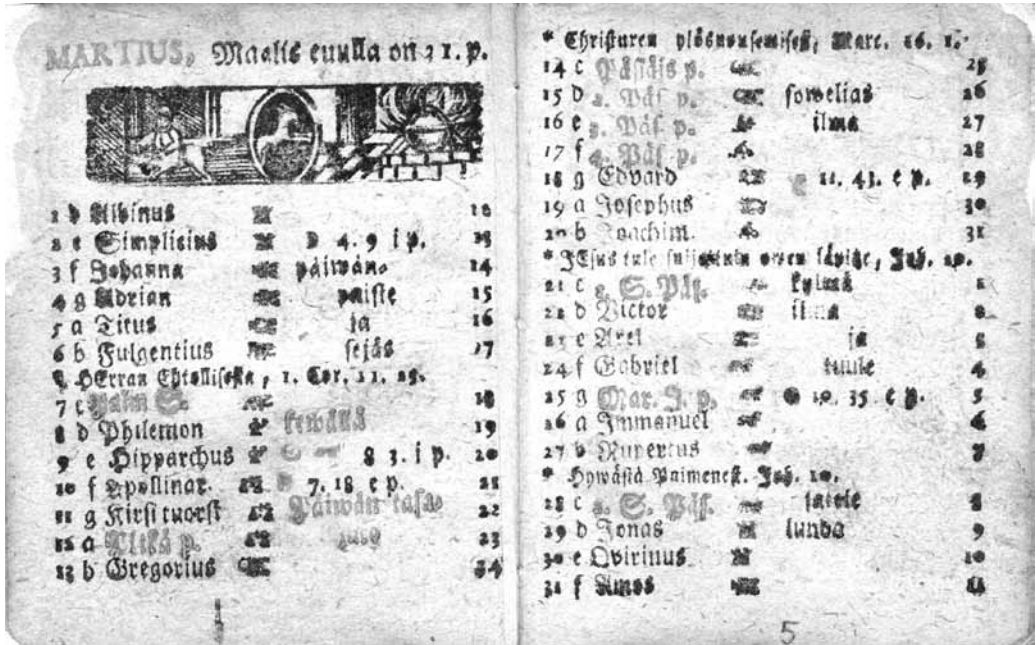 MARTIUS, Maalis cuulla on 31. p.
1 d Albinus 12
2 e Simplicius 4. 9 i p. 13
3 f Johanna päiwän- 14
4 g Adrian paiste 15
5 a Titus ja 16
6 b Fulgentius sejäs 17
HErran Ehtollisesta, 1. Cor. 11. 23.
7 c Palm S. 18
8 d Philemon kewänä 19
9 e Hipparchus 8 3. i p. 20
10 f Apollinar. 7. 18 e p. 21
11 g Kirsi tuorst Päiwän tasa- 22
12 a Pitkä p. 23
13 b Gregorius 24
* Christuxen ylösnousemisest, Marc. 16. 1.
14 c Pääsiäis p. 25
15 d 2. Pääs p. sowelias 26
16 e 3. Pääs. p. ilma 27
17 f 4. Pääs. p. 28
18 g Edvard 11. 43. e p. 29
19 a Josephus 30
20 b Joachim. 31
* JEsus tule suljetuin owen läpitze, Joh. 20.
21 c 1. S. Pääs. kylmä 1
22 d Victor ilma 2
23 e Axel ja 3
24 f Gabriel tuule 4
25 g Mar. J. p. 10. 35. e p. 5
26 a Immanuel 6
27 b Rupertus 7
* Hywästä Paimenest. Joh. 10.
28 c 2. S. Pääs. satele 8
29 d Jonas lunda 9
30 e Qvirinus 10
31 f Amos 11
5